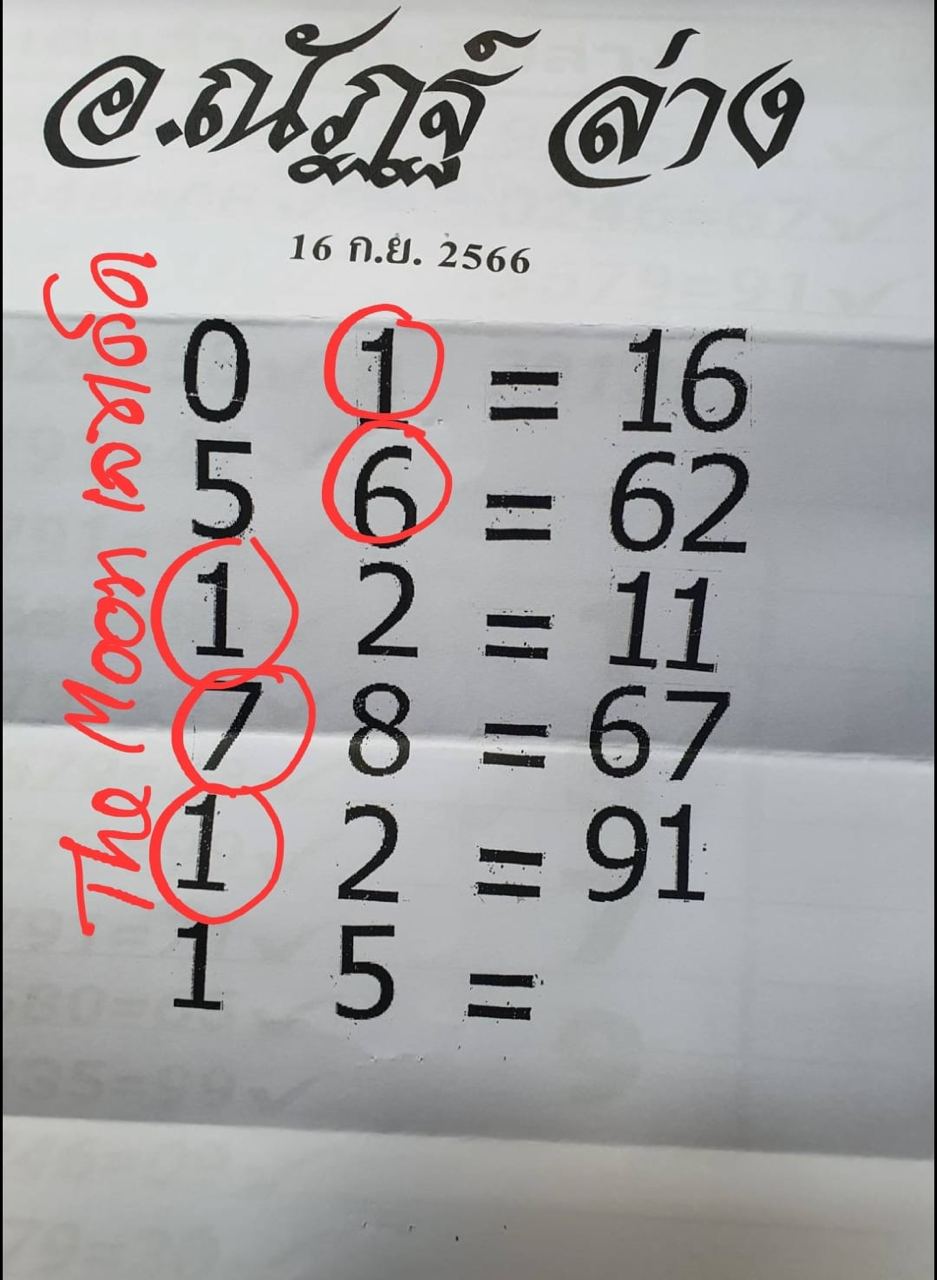 อ.ณัฏฐ์ ล่าง
16 ก.ย. 2566
0 1 = 16
5 6 = 62
1 2 = 11
7 8 = 67
1 2 = 91
1 5 =
The Moon